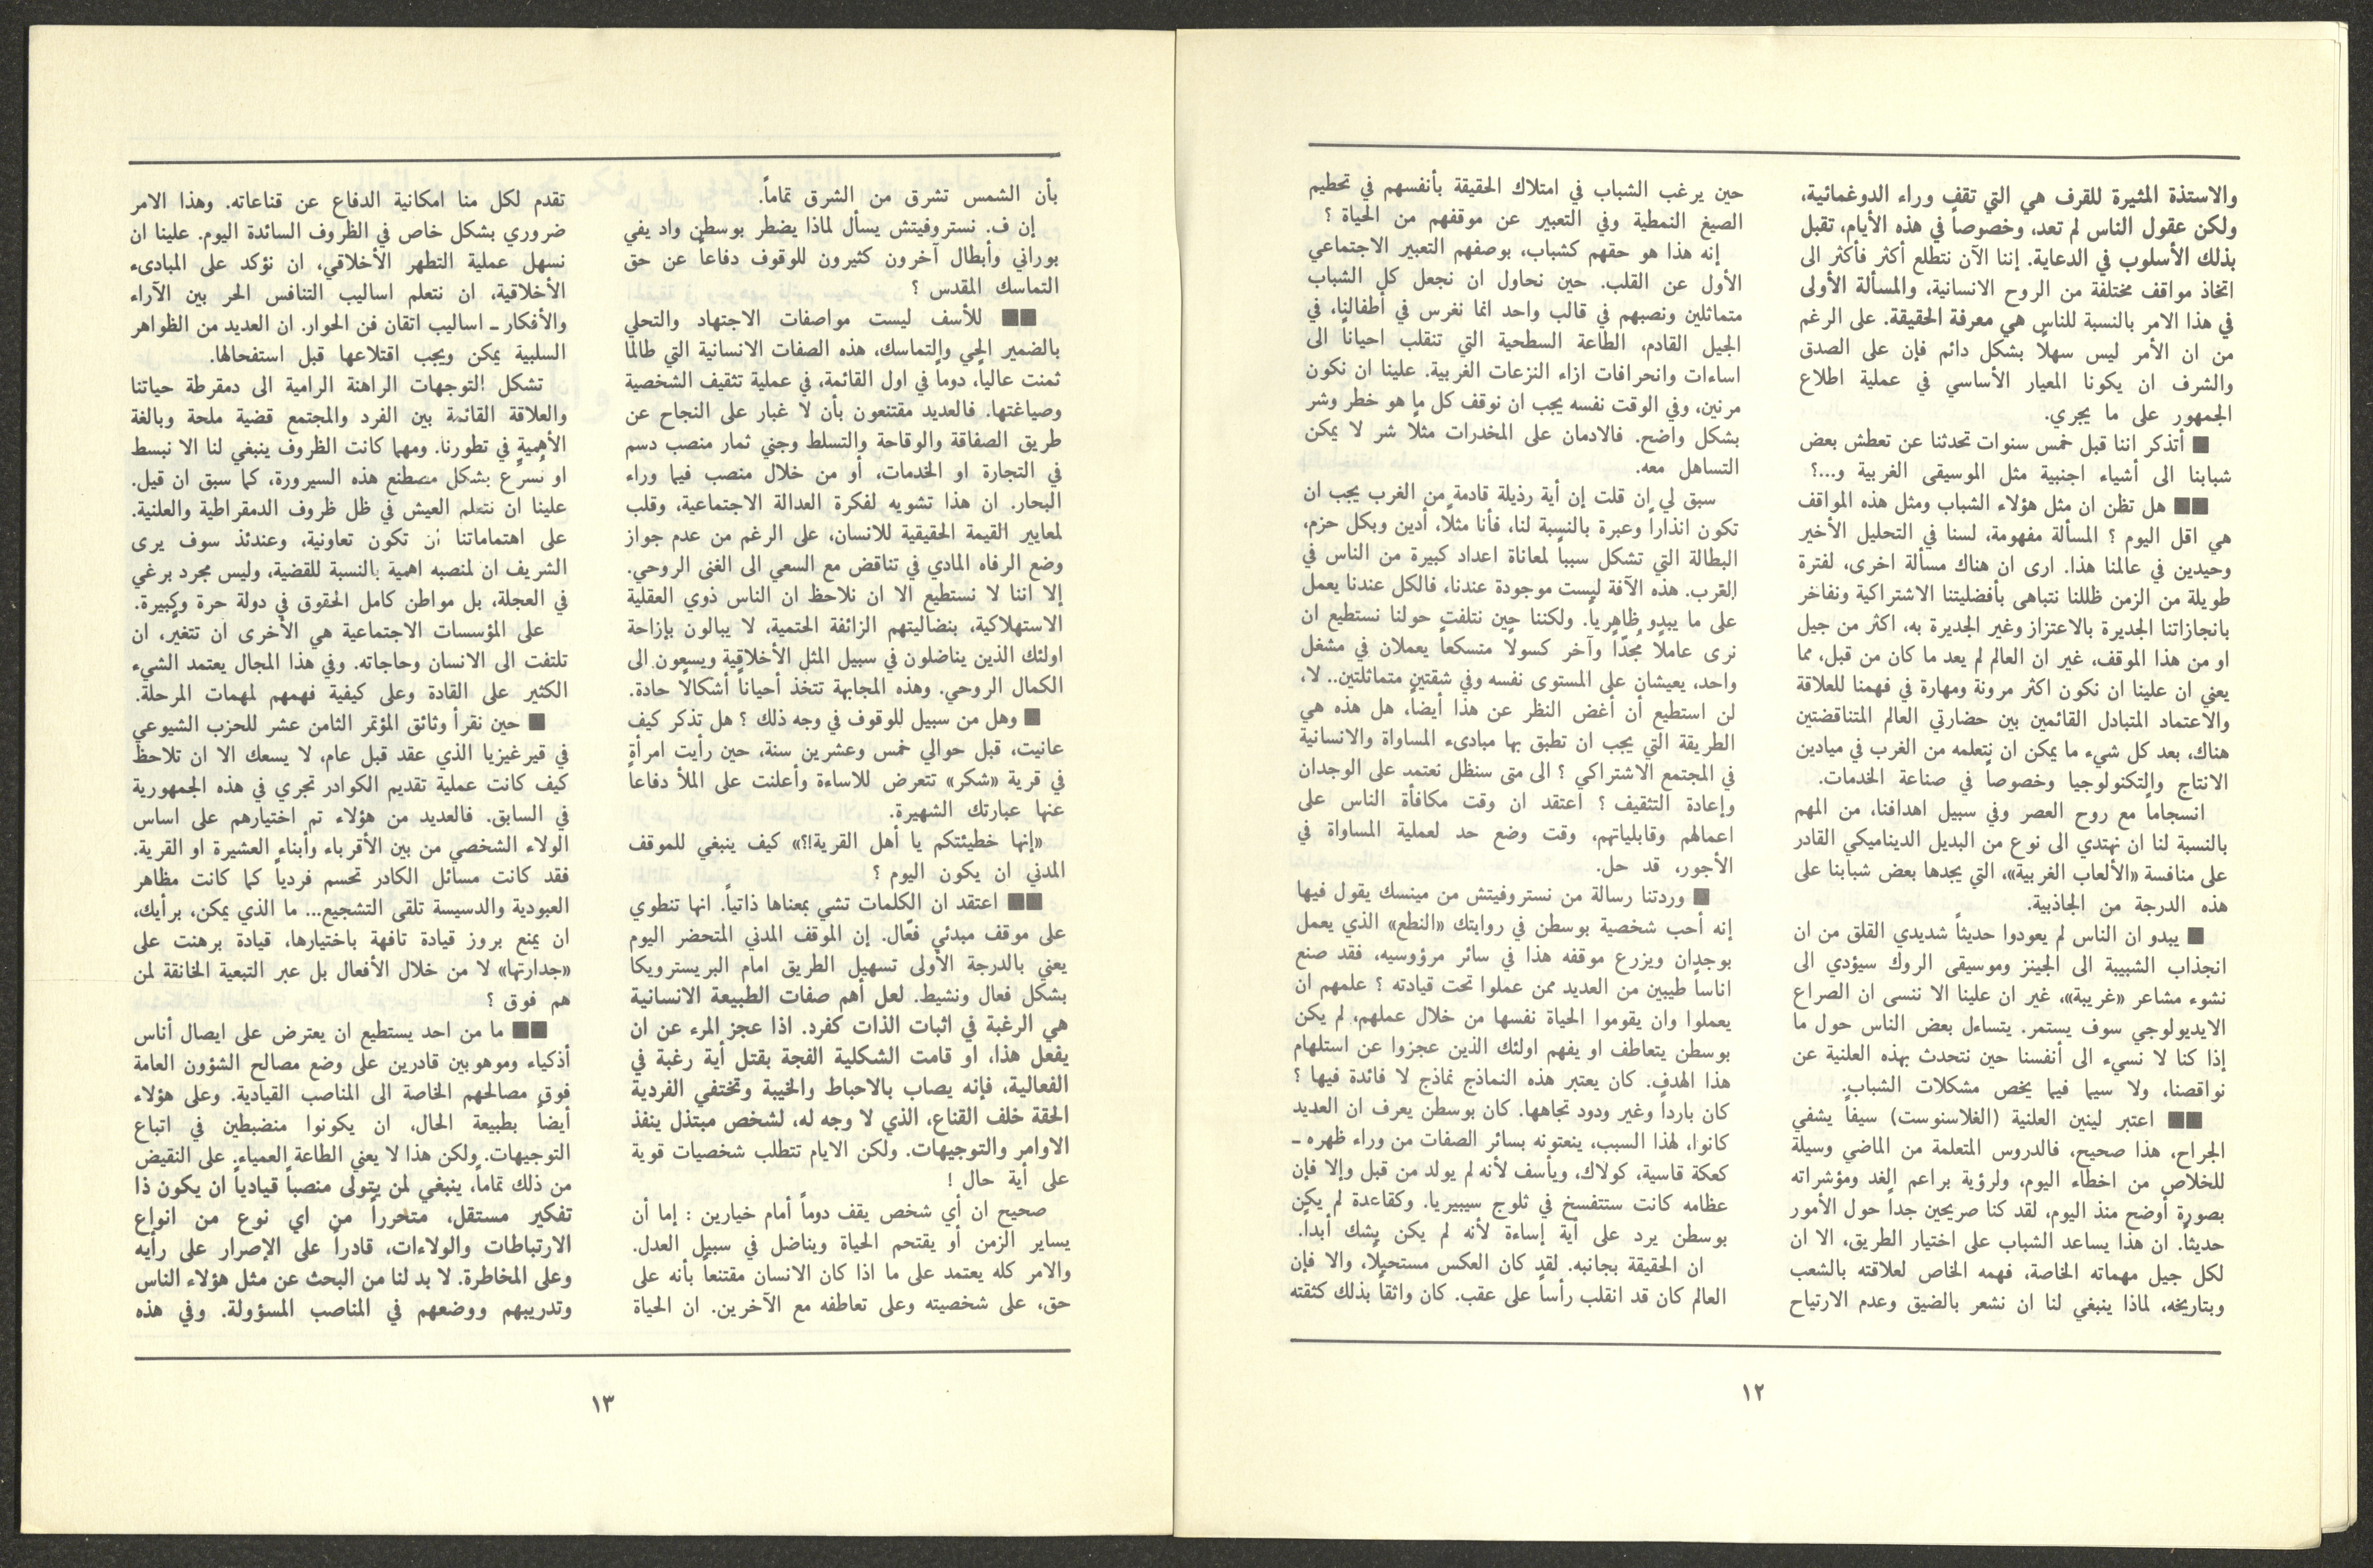 والاستذة المثيرة للقرف هي التي تقف وراء الدوغمائية،
ولكن عقول الناس لم تعد، وخصوصاً في هذه الأيام، تقبل
بذلك الأسلوب في الدعاية. إننا الآن نتطلع أكثر فأكثر الى
اتخاذ مواقف مختلفة من الروح الانسانية، والمسألة الأولى
في هذا الامر بالنسبة للناس هي معرفة الحقيقة. على الرغم
من ان الأمر ليس سهلاً بشكل دائم فإن على الصدق
والشرف ان يكونا المعيار الأساسي في عملية اطلاع
الجمهور على ما يجري.
■ أتذكر اننا قبل خمس سنوات تحدثنا عن تعطش بعض
شبابنا الى أشياء اجنبية مثل الموسيقى الغربية و...؟
■■ هل تظن ان مثل هؤلاء الشباب ومثل هذه المواقف
هي اقل اليوم ؟ المسألة مفهومة، لسنا في التحليل الأخير
وحيدين في عالمنا هذا. ارى ان هناك مسألة اخرى، لفترة
طويلة من الزمن ظللنا نتباهى بأفضليتنا الاشتراكية ونفاخر
بانجازاتنا الجديرة بالاعتزاز وغير الجديرة به، اكثر من جيل
او من هذا الموقف، غير ان العالم لم يعد ما كان من قبل، مما
يعني ان علينا ان نكون اكثر مرونة ومهارة في فهمنا للعلاقة
والاعتماد المتبادل القائمين بين حضارتي العالم المتناقضتين
هناك، بعد كل شيء ما يمكن ان نتعلمه من الغرب في ميادين
الانتاج والتكنولوجيا وخصوصاً في صناعة الخدمات.
انسجاماً مع روح العصر وفي سبيل اهدافنا، من المهم
بالنسبة لنا ان نهتدي الى نوع من البديل الديناميكي القادر
على منافسة «الألعاب الغربية»، التي يجدها بعض شبابنا على
هذه الدرجة من الجاذبية.
■ يبدو ان الناس لم يعودوا حديثاً شديدي القلق من ان
انجذاب الشبيبة الى الجينز وموسيقى الروك سيؤدي الى
نشوء مشاعر «غريبة»، غير ان علينا الا ننسى ان الصراع
الايديولوجي سوف يستمر. يتساءل بعض الناس حول ما
إذا كنا لا نسيء الى أنفسنا حين نتحدث بهذه العلنية عن
نواقصنا، ولا سيما فيما يخص مشكلات الشباب.
■■ اعتبر لينين العلنية (الغلاسنوست) سيفاً يشفي
الجراح، هذا صحيح، فالدروس المتعلمة من الماضي وسيلة
للخلاص من اخطاء اليوم، ولرؤية براعم الغد ومؤشراته
بصورة أوضح منذ اليوم، لقد كنا صريحين جداً حول الأمور
حديثاً. ان هذا يساعد الشباب على اختيار الطريق، الا ان
لكل جيل مهماته الخاصة، فهمه الخاص لعلاقته بالشعب
وبتاريخه، لماذا ينبغي لنا ان نشعر بالضيق وعدم الارتياح
حين يرغب الشباب في امتلاك الحقيقة بأنفسهم في تحطيم
الصيغ النمطية وفي التعبير عن موقفهم من الحياة ؟
إنه هذا هو حقهم كشباب، بوصفهم التعبير الاجتماعي
الأول عن القلب. حين نحاول ان نجعل كل الشباب
متماثلين ونصبهم في قالب واحد انما نغرس في أطفالنا، في
الجيل القادم، الطاعة السطحية التي تنقلب احياناً الى
اساءات وانحرافات ازاء النزعات الغربية. علينا ان نكون
مرنين، وفي الوقت نفسه يجب ان نوقف كل ما هو خطر وشر
بشكل واضح. فالادمان على المخدرات مثلاً شر لا يمكن
التساهل معه.
سبق لي ان قلت إن أية رذيلة قادمة من الغرب يجب ان
تكون انذاراً وعبرة بالنسبة لنا، فأنا مثلاً، أدين وبكل حزم،
البطالة التي تشكل سبباً لمعاناة اعداد كبيرة من الناس في
الغرب. هذه الآفة ليست موجودة عندنا، فالكل عندنا يعمل
على ما يبدو ظاهرياً. ولكننا حين نتلفت حولنا نستطيع ان
نرى عاملاً مُجدّاً وآخر كسولاً متسكعاً يعملان في مشغل
واحد، يعيشان على المستوى نفسه وفي شقتين متماثلتين.. لا،
لن استطيع أن أغض النظر عن هذا أيضاً، هل هذه هي
الطريقة التي يجب ان تطبق بها مبادىء المساواة والانسانية
في المجتمع الاشتراكي ؟ الى متى سنظل نعتمد على الوجدان
وإعادة التثقيف ؟ اعتقد ان وقت مكافأة الناس على
اعمالهم وقابلياتهم، وقت وضع حد لعملية المساواة في
الأجور، قد حل.
■ وردتنا رسالة من نستروفيتش من مينسك يقول فيها
إنه أحب شخصية بوسطن في روايتك «النطع» الذي يعمل
بوجدان ويزرع موقفه هذا في سائر مرؤوسيه، فقد صنع
اناساً طيبين من العديد ممن عملوا تحت قيادته ؟ علمهم ان
يعملوا وان يقوموا الحياة نفسها من خلال عملهم، لم يكن
بوسطن يتعاطف او يفهم اولئك الذين عجزوا عن استلهام
هذا الهدف. كان يعتبر هذه النماذج نماذج لا فائدة فيها ؟
كان بارداً وغير ودود تجاهها. كان بوسطن يعرف ان العديد
كانوا، لهذا السبب، ينعتونه بسائر الصفات من وراء ظهره ــ
كعكة قاسية، كولاك، ويأسف لأنه لم يولد من قبل وإلا فإن
عظامه كانت ستتفسخ في ثلوج سيبيريا. وكقاعدة لم يكن
بوسطن يرد على أية إساءة لأنه لم يكن يشك أبداً.
ان الحقيقة بجانبه. لقد كان العكس مستحيلاً، والا فإن
العالم كان قد انقلب رأساً على عقب. كان واثقاً بذلك كثقته
١٢
بأن الشمس تشرق من الشرق تماماً.
إن ف. نستروفيتش يسأل لماذا يضطر بوسطن واد يفي
بوراني وأبطال آخرون كثيرون للوقوف دفاعاً عن حق
التماسك المقدس ؟
■■ للأسف ليست مواصفات الاجتهاد والتحلي
بالضمير الحي والتماسك، هذه الصفات الانسانية التي طالما
ثمنت عالياً، دوماً في اول القائمة، في عملية تثقيف الشخصية
وصياغتها. فالعديد مقتنعون بأن لا غبار على النجاح عن
طريق الصفاقة والوقاحة والتسلط وجني ثمار منصب دسم
في التجارة او الخدمات، أو من خلال منصب فيما وراء
البحار. ان هذا تشويه لفكرة العدالة الاجتماعية، وقلب
لمعايير القيمة الحقيقية للانسان، على الرغم من عدم جواز
وضع الرفاه المادي في تناقض مع السعي الى الغنى الروحي.
إلا اننا لا نستطيع الا ان نلاحظ ان الناس ذوي العقلية
الاستهلاكية، بنضاليتهم الزائفة الحتمية، لا يبالون بإزاحة
اولئك الذين يناضلون في سبيل المثل الأخلاقية ويسعون الى
الكمال الروحي. وهذه المجابهة تتخذ أحياناً أشكالاً حادة.
■ وهل من سبيل للوقوف في وجه ذلك ؟ هل تذكر كيف
عانيت، قبل حوالي خمس وعشرين سنة، حين رأيت امرأة
في قرية «شكر» تتعرض للاساءة وأعلنت على الملأ دفاعاً
عنها عبارتك الشهيرة.
«إنها خطيئتكم يا أهل القرية!؟» كيف ينبغي للموقف
المدني ان يكون اليوم ؟
■■ اعتقد ان الكلمات تشي بمعناها ذاتياً. انها تنطوي
على موقف مبدئي فعّال. إن الموقف المدني المتحضر اليوم
يعني بالدرجة الأولى تسهيل الطريق امام البريسترويكا
بشكل فعال ونشيط. لعل أهم صفات الطبيعة الانسانية
هي الرغبة في اثبات الذات كفرد. اذا عجز المرء عن ان
يفعل هذا، او قامت الشكلية الفجة بقتل أية رغبة في
الفعالية، فإنه يصاب بالاحباط والخيبة وتختفي الفردية
الحقة خلف القناع، الذي لا وجه له، لشخص مبتذل ينفذ
الاوامر والتوجيهات. ولكن الايام تتطلب شخصيات قوية
على أية حال !
صحيح ان أي شخص يقف دوماً أمام خيارين : إما أن
يساير الزمن أو يقتحم الحياة ويناضل في سبيل العدل.
والامر كله يعتمد على ما اذا كان الانسان مقتنعاً بأنه على
حق، على شخصيته وعلى تعاطفه مع الآخرين. ان الحياة
تقدم لكل منا امكانية الدفاع عن قناعاته. وهذا الامر
ضروري بشكل خاص في الظروف السائدة اليوم. علينا ان
نسهل عملية التطهر الأخلاقي، ان نؤكد على المبادىء
الأخلاقية، ان نتعلم اساليب التنافس الحر بين الآراء
والأفكار ــ اساليب اتقان فن الحوار. ان العديد من الظواهر
السلبية يمكن ويجب اقتلاعها قبل استفحالها.
تشكل التوجهات الراهنة الرامية الى دمقرطة حياتنا
والعلاقة القائمة بين الفرد والمجتمع قضية ملحة وبالغة
الأهمية في تطورنا. ومهما كانت الظروف ينبغي لنا الا نبسط
او نُسرّع بشكل مصطنع هذه السيرورة، كما سبق ان قيل.
علينا ان نتعلم العيش في ظل ظروف الدمقراطية والعلنية.
على اهتماماتنا أن تكون تعاونية، وعندئذ سوف يرى
الشريف ان لمنصبه اهمية بالنسبة للقضية، وليس مجرد برغي
في العجلة، بل مواطن كامل الحقوق في دولة حرة وكبيرة.
على المؤسسات الاجتماعية هي الأخرى ان تتغير، ان
تلتفت الى الانسان وحاجاته. وفي هذا المجال يعتمد الشيء
الكثير على القادة وعلى كيفية فهمهم لمهمات المرحلة.
■ حين نقرأ وثائق المؤتمر الثامن عشر للحزب الشيوعي
في قيرغيزيا الذي عقد قبل عام، لا يسعك الا ان تلاحظ
كيف كانت عملية تقديم الكوادر تجري في هذه الجمهورية
في السابق. فالعديد من هؤلاء تم اختيارهم على اساس
الولاء الشخصي من بين الأقرباء وأبناء العشيرة او القرية.
فقد كانت مسائل الكادر تحسم فردياً كما كانت مظاهر
العبودية والدسيسة تلقى التشجيع... ما الذي يمكن، برأيك،
ان يمنع بروز قيادة تافهة باختيارها، قيادة برهنت على
«جدارتها» لا من خلال الأفعال بل عبر التبعية الخانقة لمن
هم فوق ؟
■■ ما من احد يستطيع ان يعترض على ايصال أناس
أذكياء وموهوبين قادرين على وضع مصالح الشؤون العامة
فوق مصالحهم الخاصة الى المناصب القيادية. وعلى هؤلاء
أيضاً بطبيعة الحال، ان يكونوا منضبطين في اتباع
التوجيهات. ولكن هذا لا يعني الطاعة العمياء. على النقيض
من ذلك تماماً، ينبغي لمن يتولى منصباً قيادياً ان يكون ذا
تفكير مستقل، متحرراً من اي نوع من انواع
الارتباطات والولاءات، قادراً على الإصرار على رأيه
وعلى المخاطرة. لا بد لنا من البحث عن مثل هؤلاء الناس
وتدريبهم ووضعهم في المناصب المسؤولة. وفي هذه
١٣